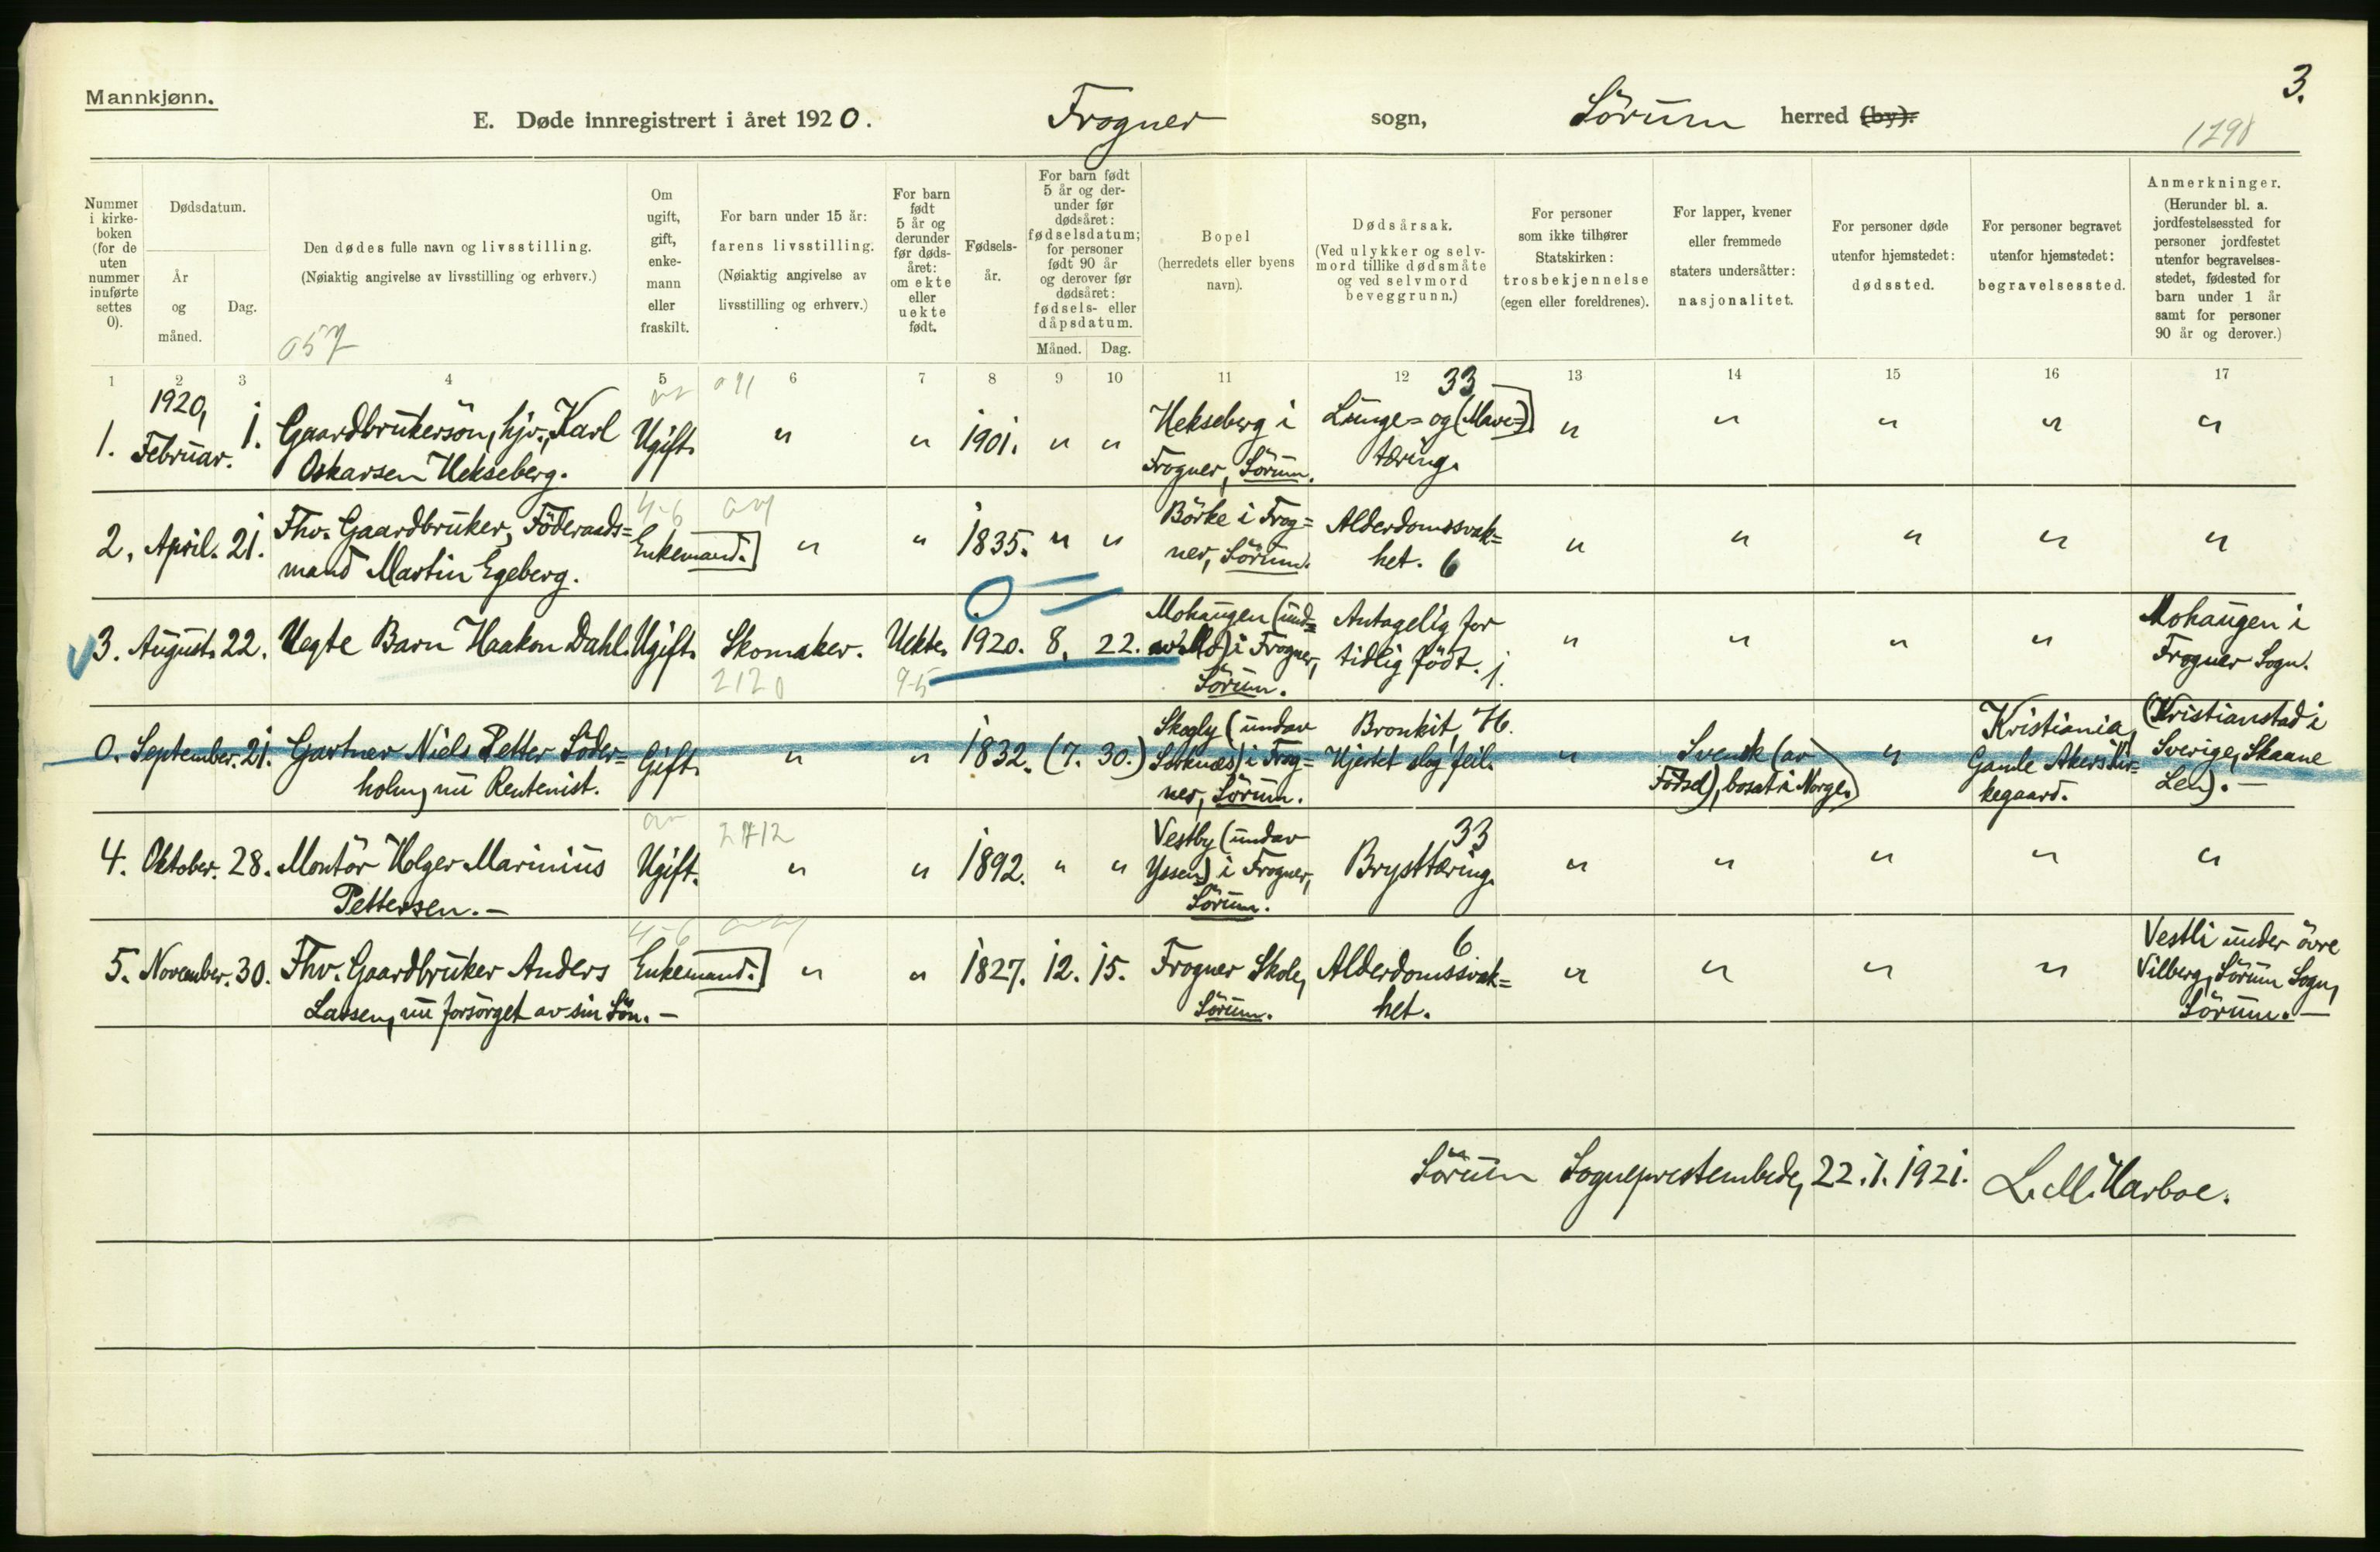 Mannkjønn.
3.
E. Døde innregistrert i året 1920. Frogner sogn, Sörum herred (by).
1298
Nummer i kirkeboken (for de uten nummer innførte settes 0).
Dødsdatum.
År og måned.
Dag.
Den dødes fulle navn og livsstilling.
(Nøiaktig angivelse av livsstilling og erhverv.)
057
Om ugift, gift, enkemann eller fraskilt.
For barn under 15 år:
farens livsstilling.
(Nøiaktig angivelse av
livsstilling og erhverv.)
For barn født 5 år og derunder før dødsåret: om ekte eller uekte født.
Fødselsår.
For barn født 5 år og derunder før dødsåret: fødselsdatum; for personer født 90 år og derover før dødsåret: fødsels- eller dåpsdatum.
Måned. Dag.
Bopel
(herredets eller byens
navn).
Dødsårsak.
(Ved ulykker og selv-
mord tillike dødsmåte
og ved selvmord
beveggrunn.)
For personer
som ikke tilhører
Statskirken:
trosbekjennelse
(egen eller foreldrenes).
For lapper, kvener
eller fremmede
staters undersåtter:
nasjonalitet.
For personer døde
utenfor hjemstedet:
dødssted.
For personer begravet
utenfor hjemstedet:
begravelsessted.
Anmerkninger.
(Herunder bl. a.
jordfestelsessted for
personer jordfestet
utenfor begravelses-
stedet, fødested for
barn under 1 år
samt for personer
90 år og derover.)
1 2 3 4 5 6 7 8 9 10 11 12 13 14 15 16 17
1. 1920, Februar. 1. Gaardbrukersön, hjv., Karl
Oskarsen Hekseberg.
Ugift. " " 1901. " " Hekseberg i
Frogner, Sörum.
33
Lunge= og (Mave=)
tæring. " " " " "
2. April. 21. Fhv. Gaardbruker, Föderaads=
mand Martin Egeberg.
Enkemand. " " 1835. " " Börke i Frog=
ner, Sörum.
Alderdomssvak=
het. 6 " " " " "
3. August. 22. Uegte Barn Haakon Dahl. Ugift. Skomaker. Uekte. 1920. 8. 22.
2120 95
Mohaugen (und=
i Frogner,
Sörum.
Antagelig for
tidlig födt. 1. " " " "
Mohaugen i
Frogner Sogn.
0. September. 21. Gartner Niels Petter Söder=
holm, nu Rentenist.
Gift. " " 1832. (7. 30.) Skogly (undav
Sörknæs) i Frog=
ner, Sörum.
Bronkit, H.
Hjertet slog feil. "
Svensk (av
Födsel), bosat i Norge. "
Kristiania,
Gamle Akers Kir=
kegaard.
(Kristianstad i
Sverige, Skaane
Len). —
4. Oktober. 28. Montör Holger Marinius
Pettersen. —
Ugift. 2712 " " 1892. " " Vestby (undav
i Frogner,
Sörum.
33
Brysttæring. " " " " "
5. November. 30. Fhv. Gaardbruker Anders
Larsen, nu forsörget av sin Sön. —
Enkemand. " " 1827. 12. 15. Frogner Skole,
Sörum.
6
Alderdomssvak=
het. " " " "
Vestli under övre
Vilberg, Sörum Sogn,
Sörum. —
Sörum Sogneprestembede, 22.1.1921. L. M. Harboe.